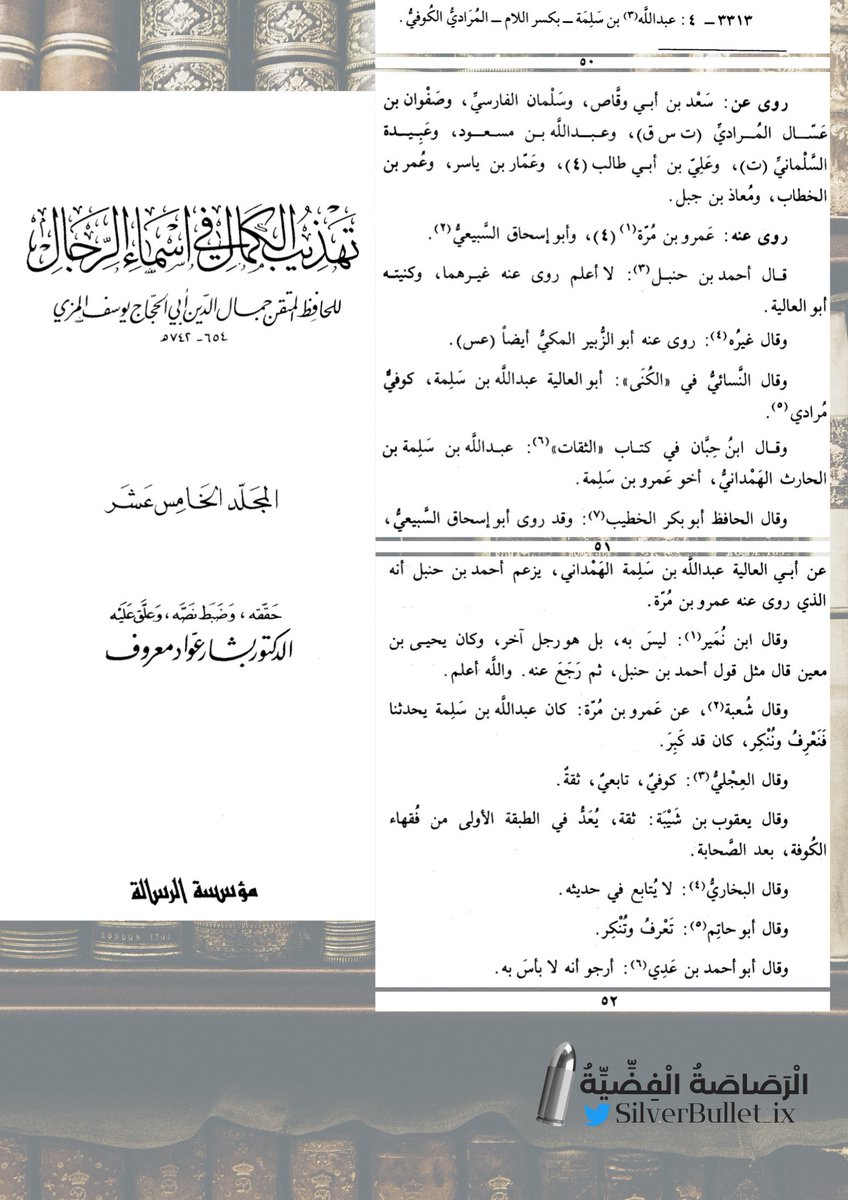 تهذيب الكمال في أسماء الرجال
للحافظ المتقن جمال الدين أبي الحجاج يوسف المزي
٦٥٤ - ٧٤٢ هـ
المجلد الخامس عشر
حققه، وضبط نصه، وعلق عليه
الدكتور بشار عواد معروف
مؤسسة الرسالة
٣٣١٣ - ٤ : عبداللَّه(٣) بن سَلِمَة - بكسر اللام - المُرَاديُّ الكُوفيُّ .
٥٠
روى عن: سَعْد بن أبي وقَّاص، وسَلْمان الفارسيِّ، وصَفْوان بن
عَسَّال المُراديِّ (ت س ق)، وعبداللَّه بن مسعود، وعَبِيدة
السَّلْمانيِّ (ت)، وعَلِيّ بن أبي طالب (٤)، وعَمّار بن ياسر، وعُمر بن
الخطاب، ومُعاذ بن جبل.
روى عنه: عَمرو بن مُرّة(١) (٤)، وأبو إسحاق السَّبيعيُّ(٢).
قال أحمد بن حنبل(٣): لا أعلم روى عنه غيرهما، وكنيته
أبو العالية.
وقال غيرُه(٤): روى عنه أبو الزُّبير المكيُّ أيضاً (عس).
وقال النَّسائيُّ في «الكُنَى»: أبو العالية عبداللَّه بن سَلِمة، كوفيٌّ
مُرادي(٥).
وقال ابنُ حِبَّان في كتاب «الثقات»(٦): عبداللَّه بن سَلِمة بن
الحارث الهَمْدانيُّ، أخو عَمرو بن سَلِمة.
وقال الحافظ أبو بكر الخطيب(٧): وقد روى أبو إسحاق السَّبيعيُّ،
٥١
عن أبي العالية عبداللَّه بن سَلِمة الهَمْداني، يزعم أحمد بن حنبل أنه
الذي روى عنه عمرو بن مُرّة.
وقال ابن نُمَير(١): ليسَ به، بل هو رجل آخر، وكان يحيى بن
معين قال مثل قول أحمد بن حنبل، ثم رَجَعَ عنه. واللَّه أعلم.
وقال شُعبة(٢)، عن عَمرو بن مُرّة: كان عبداللَّه بن سَلِمة يحدثنا
فَنَعْرِفُ ونُنْكِر، كان قد كَبِرَ.
وقال العِجْليُّ(٣): كوفيٌ، تابعيٌ، ثقةٌ.
وقال يعقوب بن شَيْبَة: ثقة، يُعَدُّ في الطبقة الأولى من فُقهاء
الكُوفة، بعد الصَّحابة.
وقال البخاريُّ(٤): لا يُتابع في حديثه.
وقال أبو حاتِم(٥): تَعْرفُ وتُنْكِر.
وقال أبو أحمد بن عَدِي(٦): أرجو أنه لا بأسَ به.
٥٢
الْرَصَاصَةُ الْفِضِّيَّةُ
SilverBullet_ix
LONDON